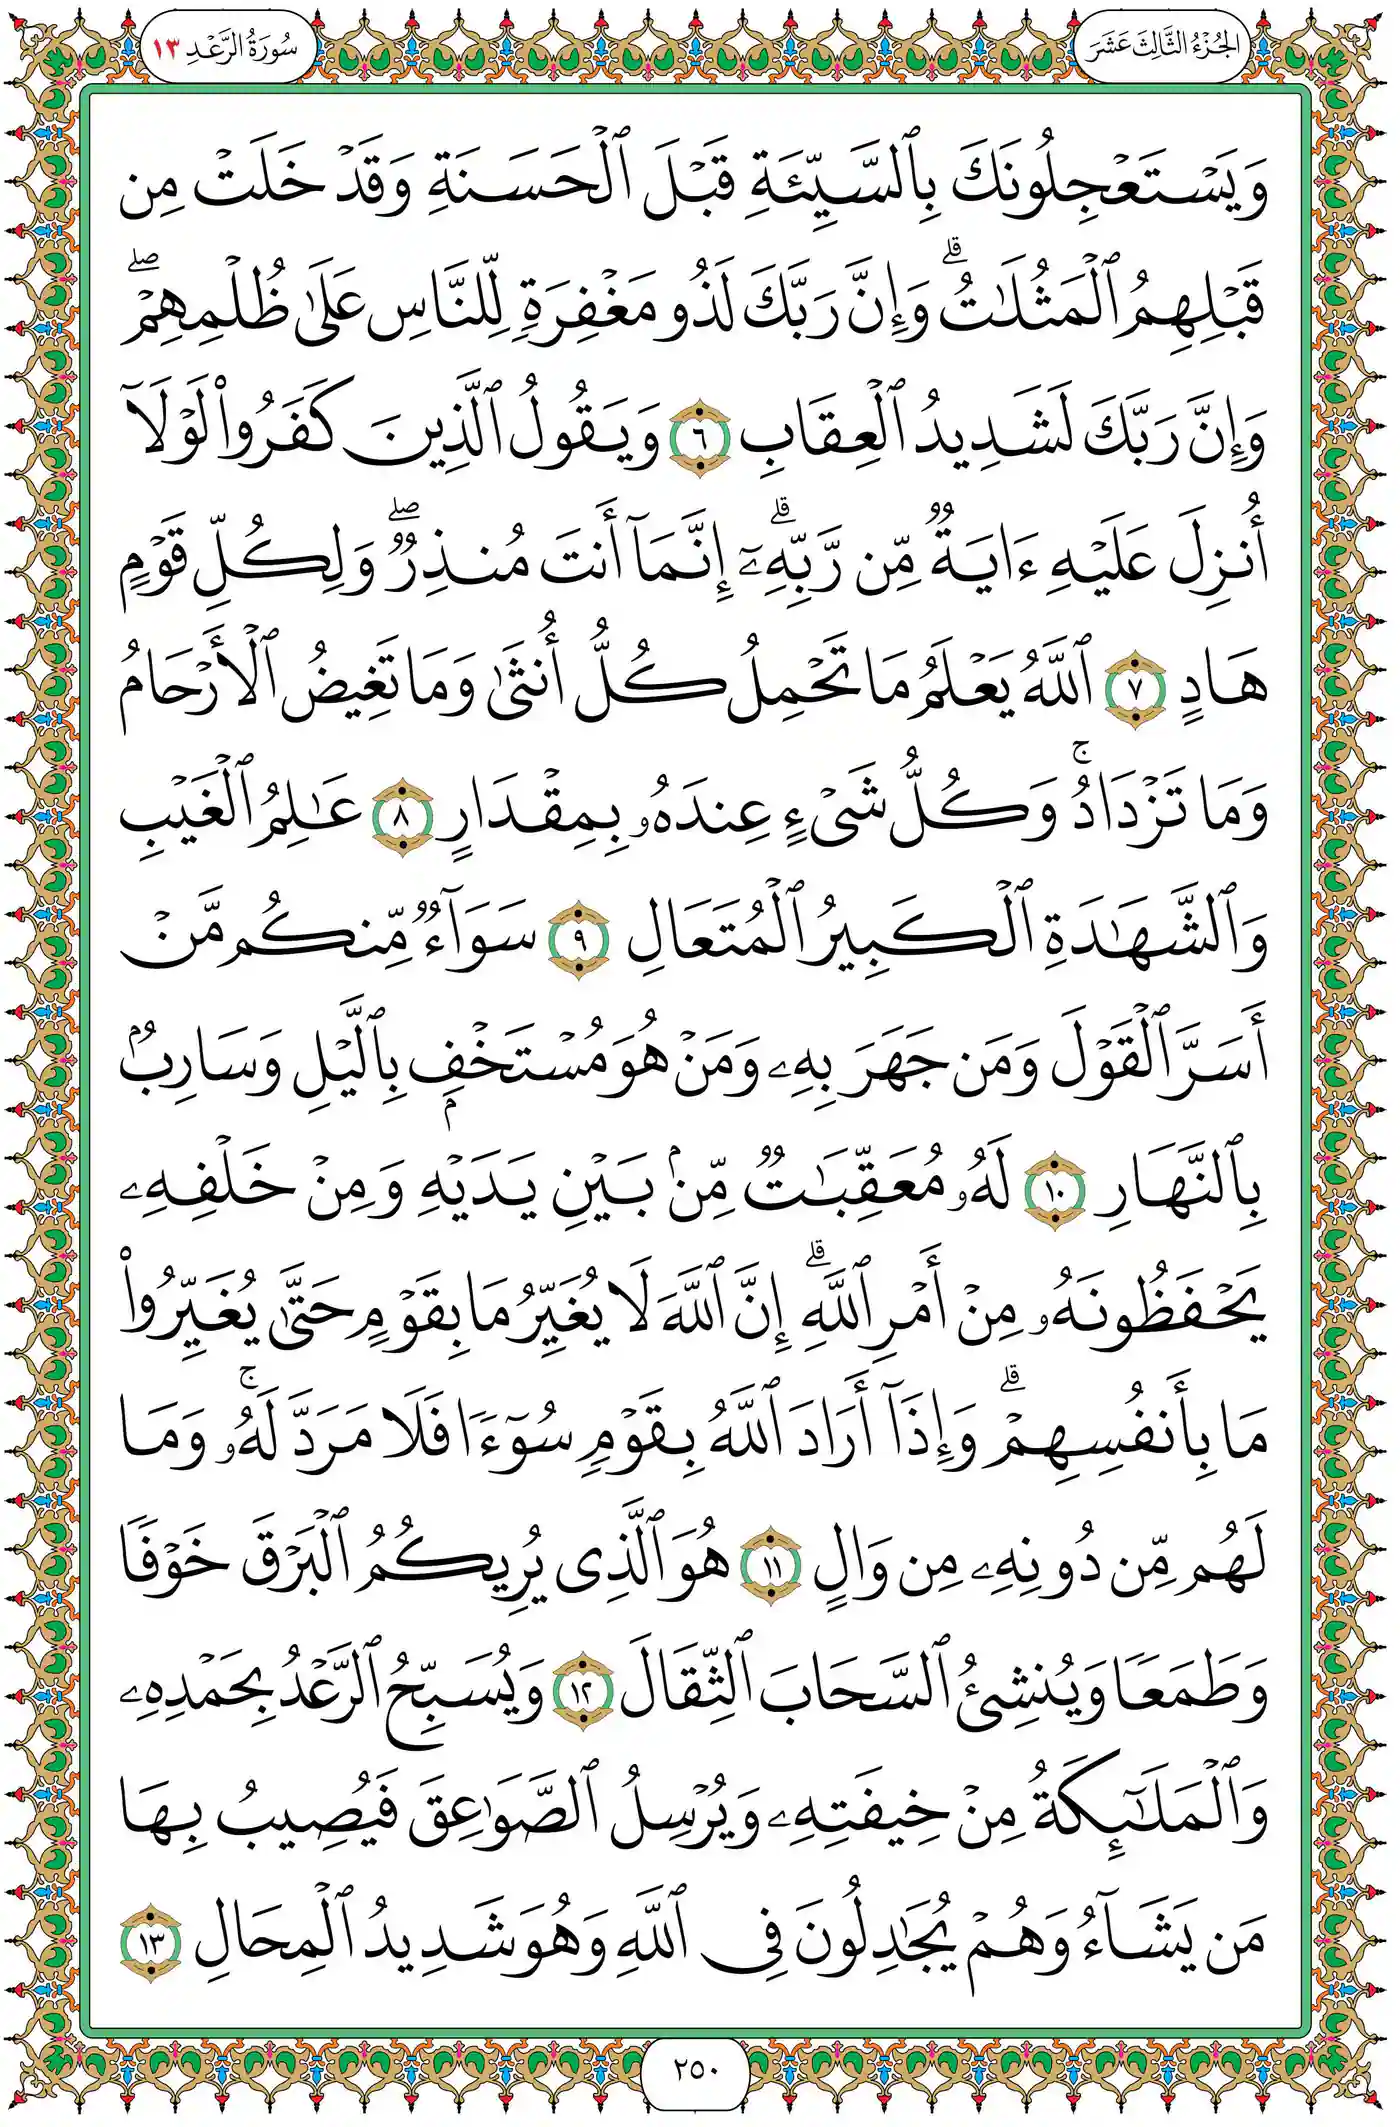 الجُزْءُ الثَّالِثَ عَشَرَ
سُورَةُ الرَّعْدِ ١٣
وَيَسۡتَعۡجِلُونَكَ بِٱلسَّيِّئَةِ قَبۡلَ ٱلۡحَسَنَةِ وَقَدۡ خَلَتۡ مِن
قَبۡلِهِمُ ٱلۡمَثُلَٰتُۗ وَإِنَّ رَبَّكَ لَذُو مَغۡفِرَةٖ لِّلنَّاسِ عَلَىٰ ظُلۡمِهِمۡۖ
وَإِنَّ رَبَّكَ لَشَدِيدُ ٱلۡعِقَابِ ٦ وَيَقُولُ ٱلَّذِينَ كَفَرُواْ لَوۡلَآ
أُنزِلَ عَلَيۡهِ ءَايَةٞ مِّن رَّبِّهِۦٓۗ إِنَّمَآ أَنتَ مُنذِرٞۖ وَلِكُلِّ قَوۡمٍ
هَادٍ ٧ ٱللَّهُ يَعۡلَمُ مَا تَحۡمِلُ كُلُّ أُنثَىٰ وَمَا تَغِيضُ ٱلۡأَرۡحَامُ
وَمَا تَزۡدَادُۚ وَكُلُّ شَيۡءٍ عِندَهُۥ بِمِقۡدَارٍ ٨ عَٰلِمُ ٱلۡغَيۡبِ
وَٱلشَّهَٰدَةِ ٱلۡكَبِيرُ ٱلۡمُتَعَالِ ٩ سَوَآءٞ مِّنكُم مَّنۡ
أَسَرَّ ٱلۡقَوۡلَ وَمَن جَهَرَ بِهِۦ وَمَنۡ هُوَ مُسۡتَخۡفِۭ بِٱلَّيۡلِ وَسَارِبُۢ
بِٱلنَّهَارِ ١٠ لَهُۥ مُعَقِّبَٰتٞ مِّنۢ بَيۡنِ يَدَيۡهِ وَمِنۡ خَلۡفِهِۦ
يَحۡفَظُونَهُۥ مِنۡ أَمۡرِ ٱللَّهِۗ إِنَّ ٱللَّهَ لَا يُغَيِّرُ مَا بِقَوۡمٍ حَتَّىٰ يُغَيِّرُواْ
مَا بِأَنفُسِهِمۡۗ وَإِذَآ أَرَادَ ٱللَّهُ بِقَوۡمٖ سُوٓءٗا فَلَا مَرَدَّ لَهُۥۚ وَمَا
لَهُم مِّن دُونِهِۦ مِن وَالٍ ١١ هُوَ ٱلَّذِي يُرِيكُمُ ٱلۡبَرۡقَ خَوۡفٗا
وَطَمَعٗا وَيُنشِئُ ٱلسَّحَابَ ٱلثِّقَالَ ١٢ وَيُسَبِّحُ ٱلرَّعۡدُ بِحَمۡدِهِۦ
وَٱلۡمَلَٰٓئِكَةُ مِنۡ خِيفَتِهِۦ وَيُرۡسِلُ ٱلصَّوَٰعِقَ فَيُصِيبُ بِهَا
مَن يَشَآءُ وَهُمۡ يُجَٰدِلُونَ فِي ٱللَّهِ وَهُوَ شَدِيدُ ٱلۡمِحَالِ ١٣
٢٥٠